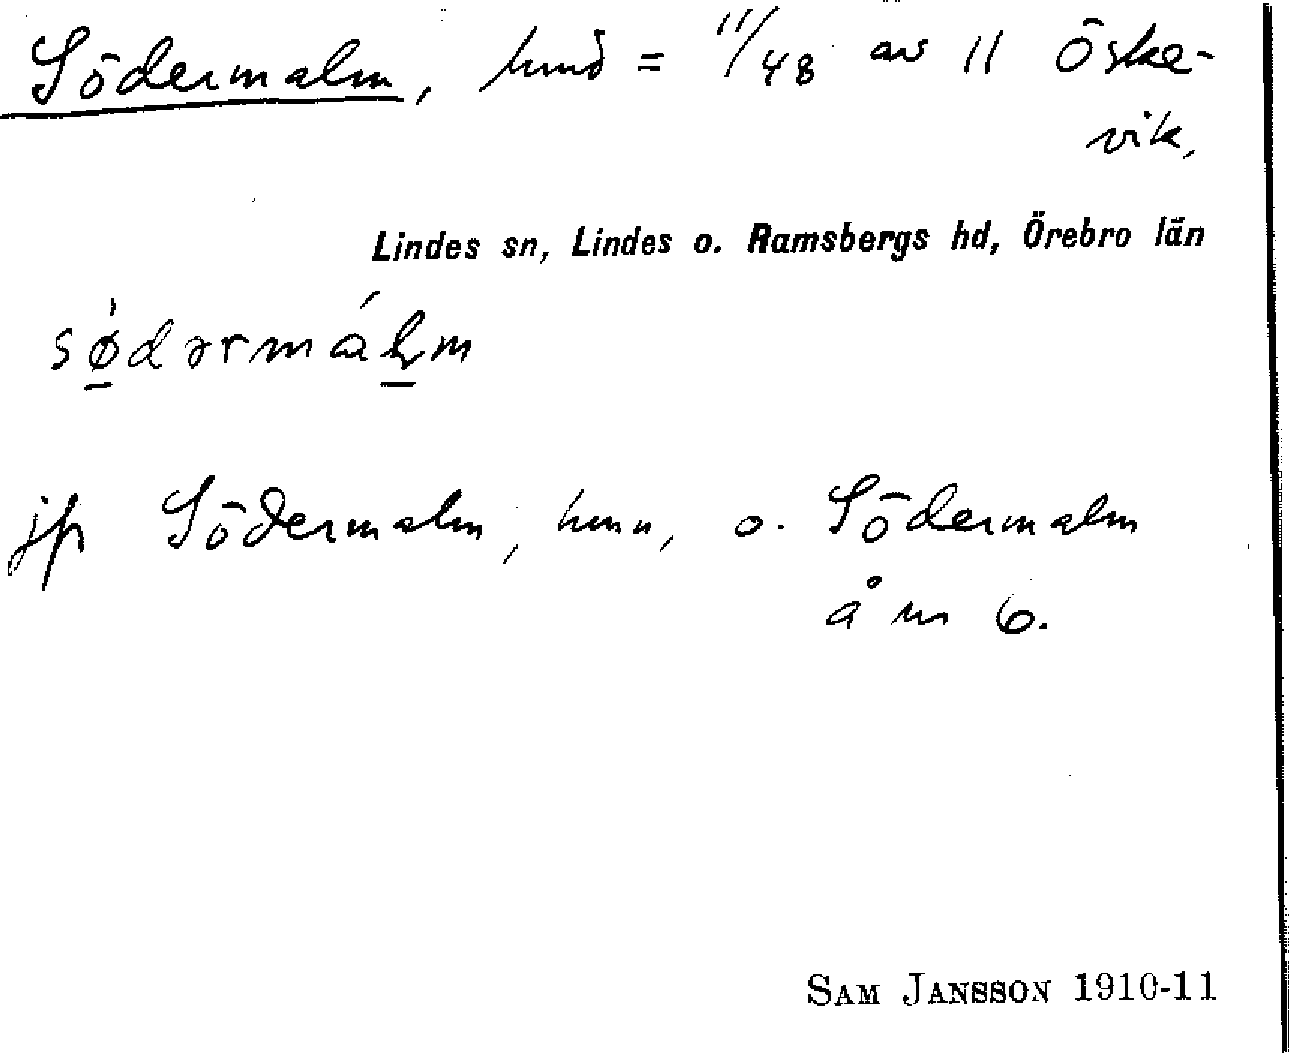 Södermalm, hmd = 11/48 av 11 Öske-
vik,
Lindes sn, Lindes o. Ramsbergs hd, Örebro län
sǿdərmáḷm
jfr Södermalm, hmn, o. Södermalm
å nr 6.
SAM JANSSON 1910-11